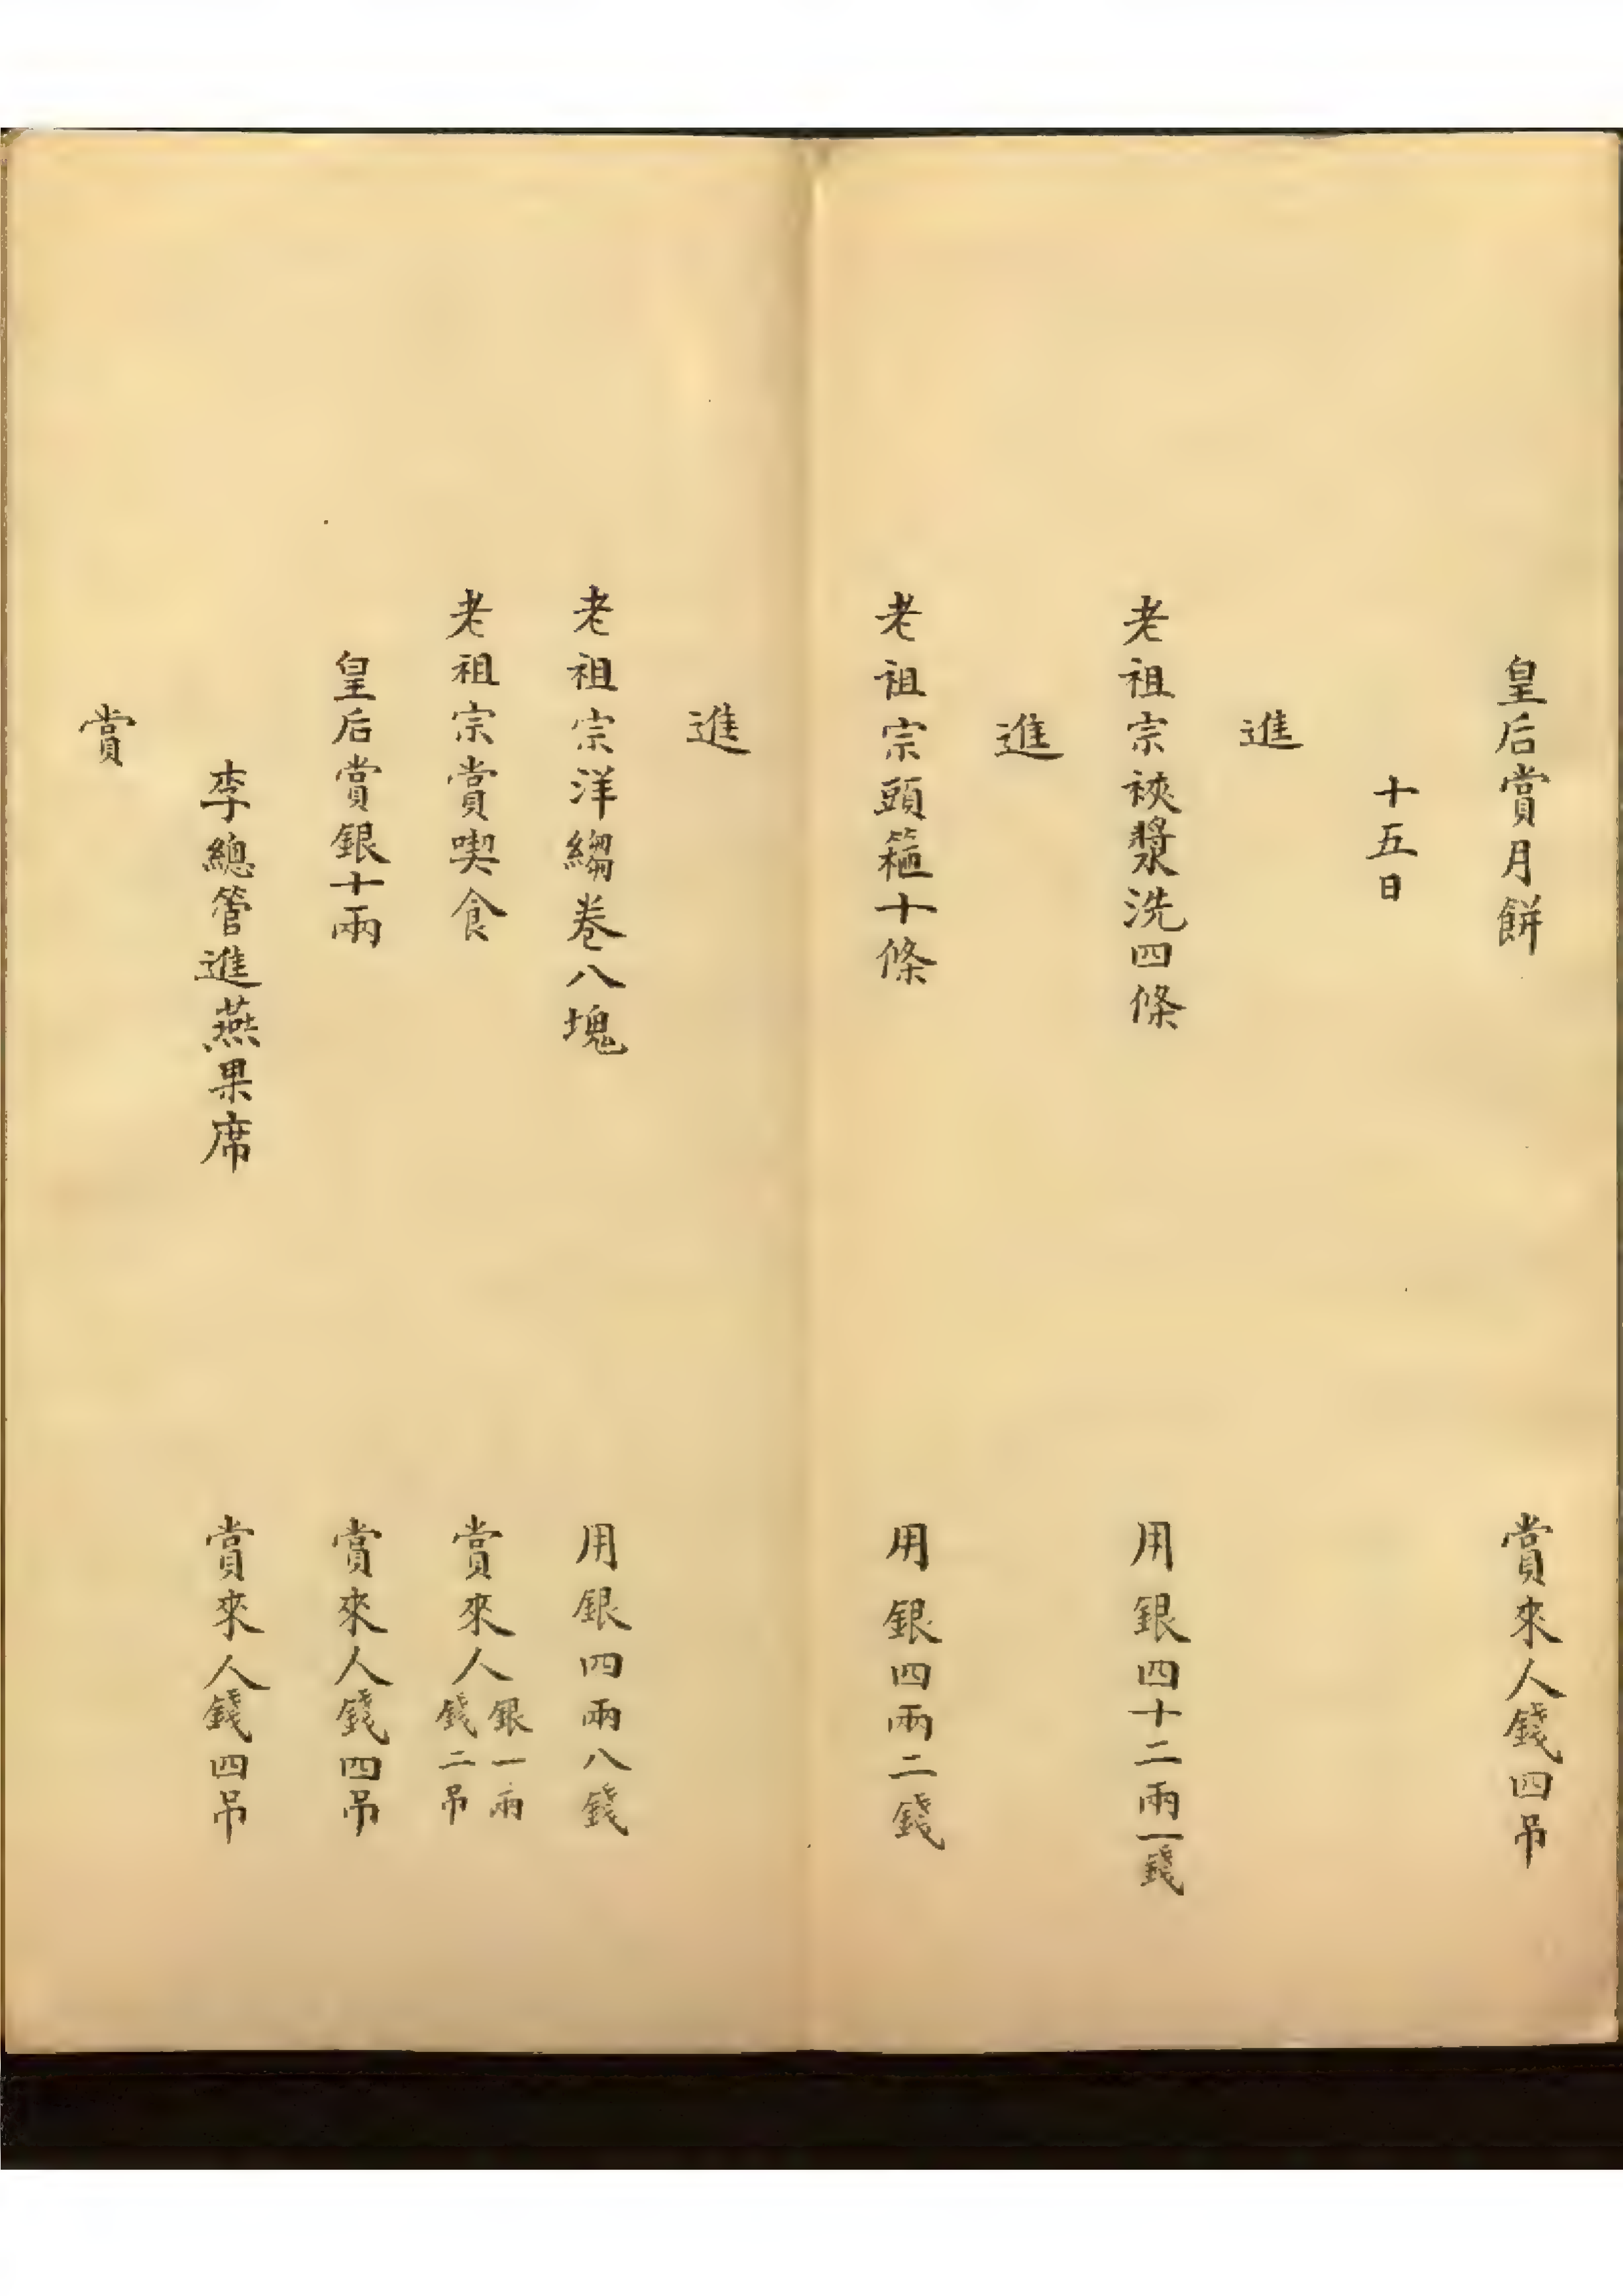 皇后賞月餅　賞來人錢四吊
十五日
進
老祖宗裌漿洗四條　用銀四十二兩一錢
進
老祖宗頭箍十條　用銀四兩二錢
進
老祖宗洋縐卷八塊　用銀四兩八錢
老祖宗賞喫食　賞來人銀一兩錢二吊
皇后賞銀十兩　賞來人錢四吊
李總管進燕果席　賞來人錢四吊
賞